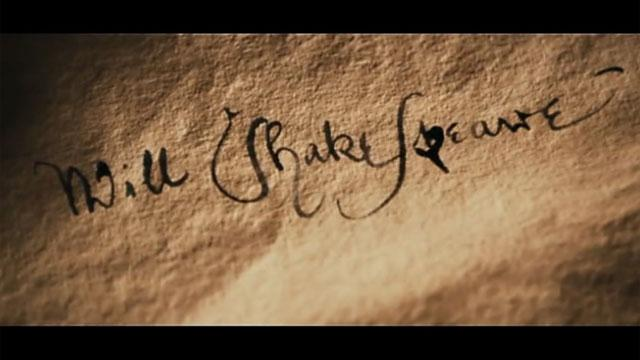 Will Shakespeare